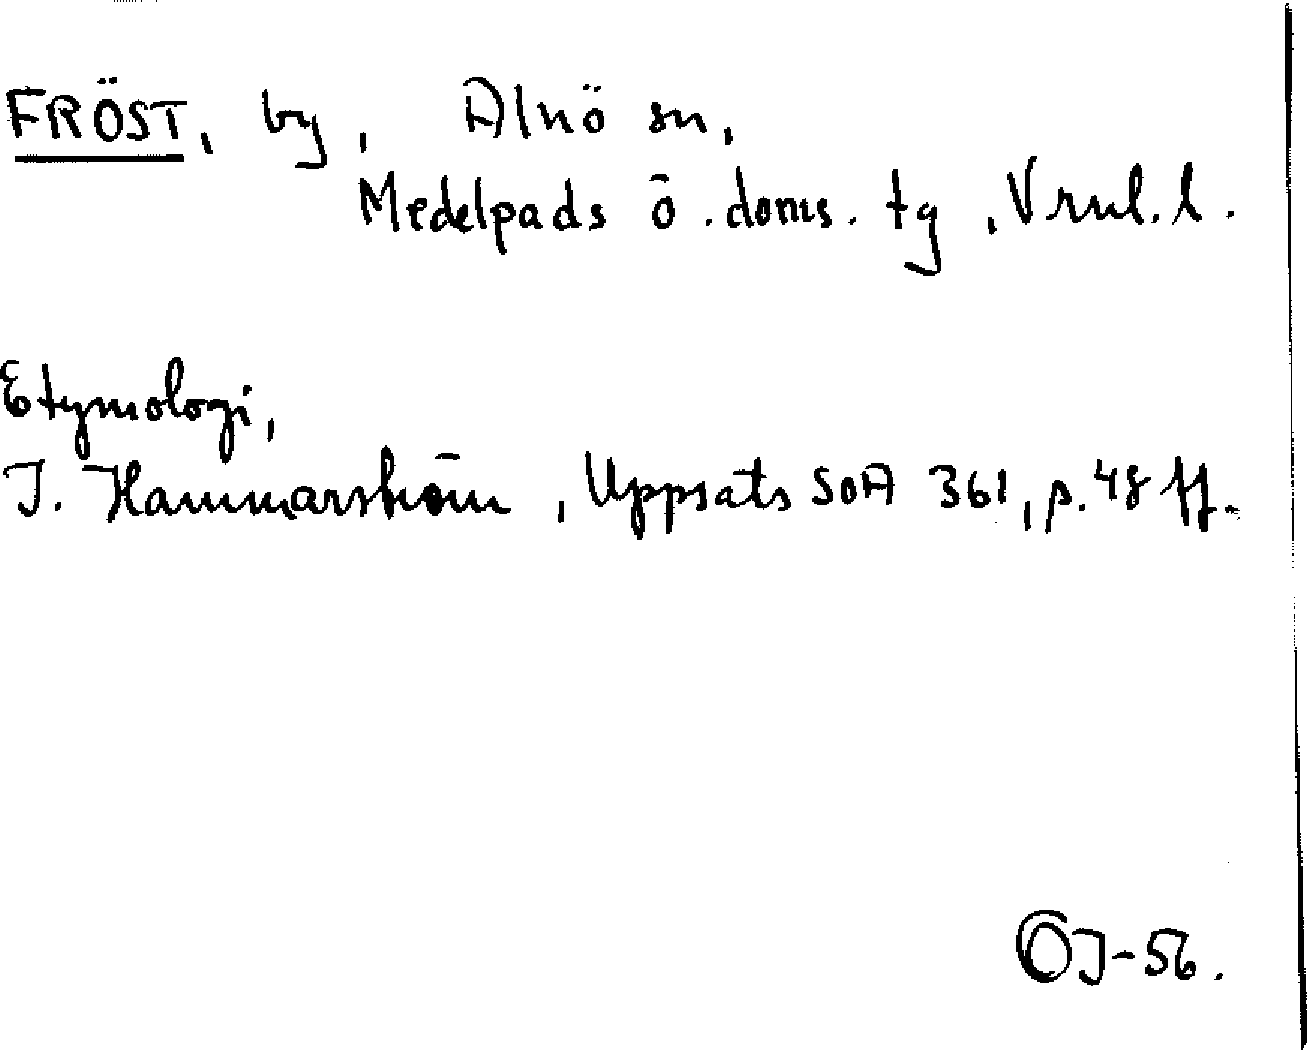 FRÖST, by, Alnö sn,
Medelpads ö. doms. tg, Vrnl. l.
Etymologi,
I. Hammarström, Uppsats SOA 361, p. 48 ff.
OJ-56.